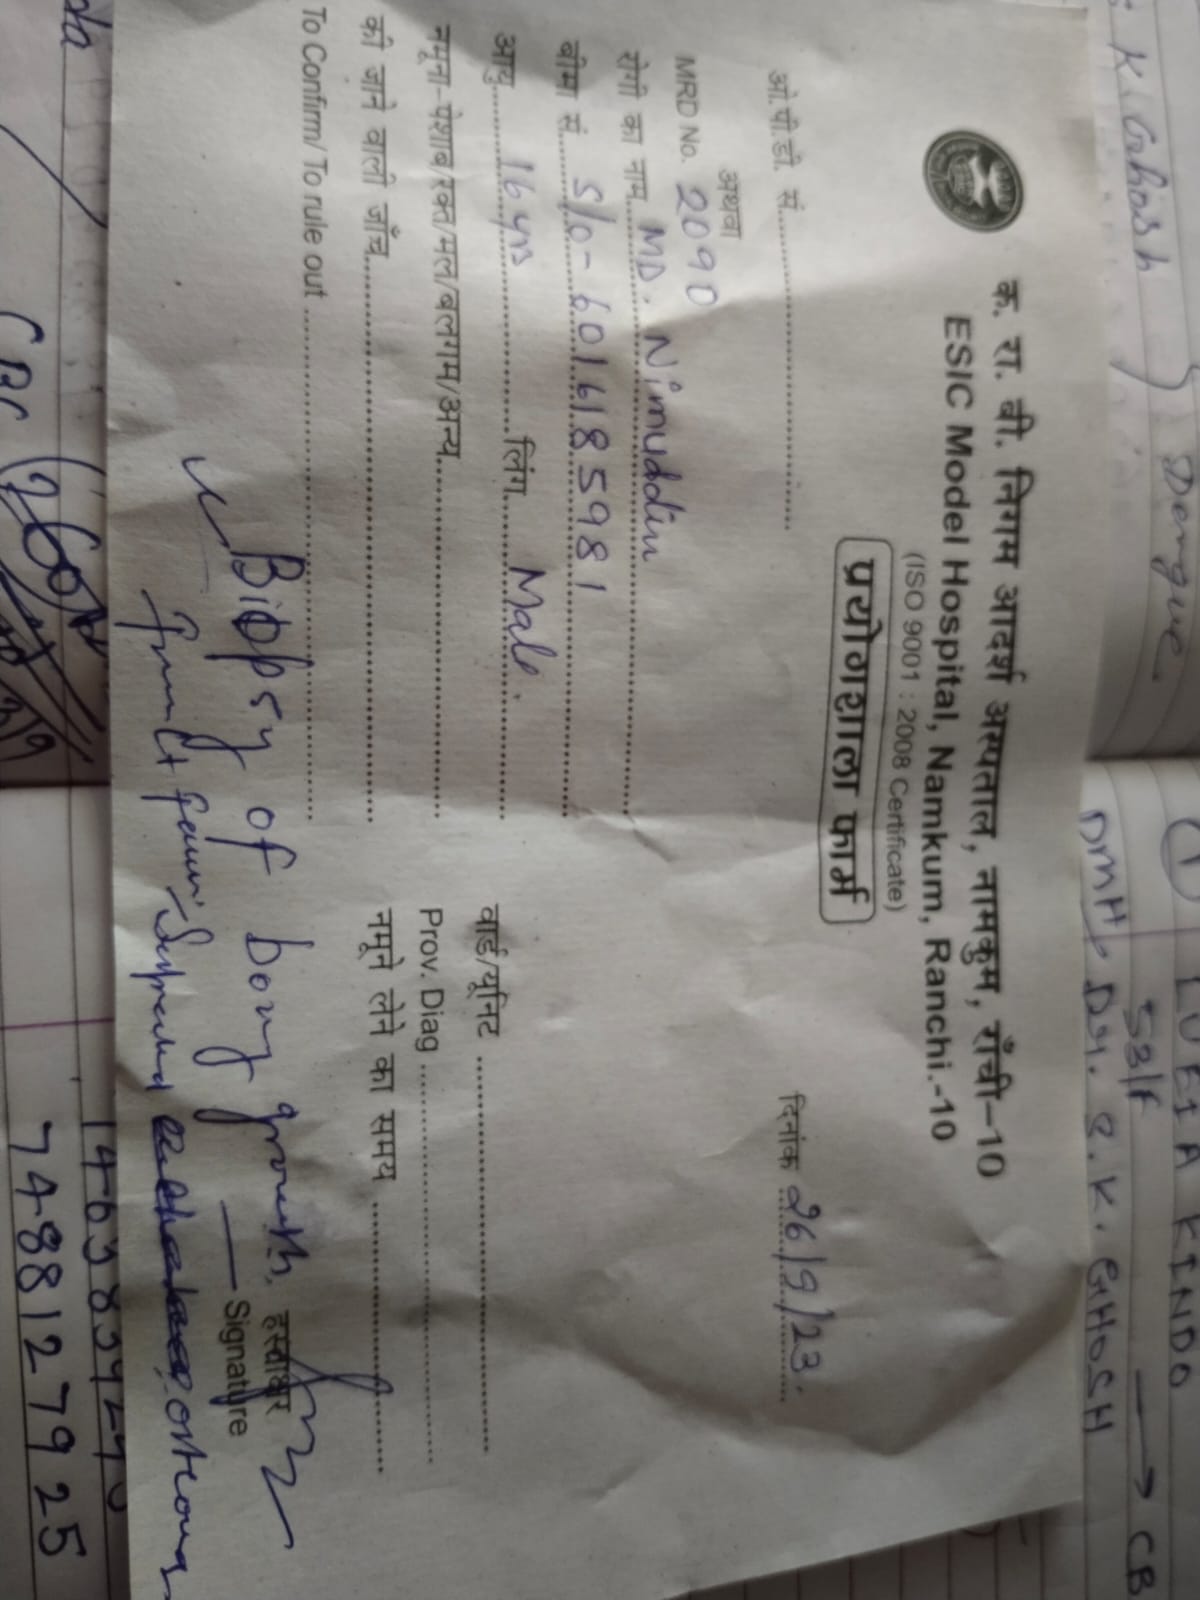 K. Ghosh
Dengue.
① LUCIA KINDO
58/F → CB
DMH, Dr. S.K. GHOSH
क. रा. बी. निगम आदर्श अस्पताल, नामकुम, राँची-10
ESIC Model Hospital, Namkum, Ranchi.-10
(ISO 9001 : 2008 Certificate)
प्रयोगशाला फार्म
ओ.पी.डी. सं. दिनांक 26/9/23.
अथवा
MRD No. 2090
रोगी का नाम MD. Nimuddin
बीमा सं. S/o- 6016185981
आयु 16 yrs लिंग Male. वार्ड/यूनिट
नमूना-पेशाब/रक्त/मल/बलगम/अन्य Prov. Diag
की जाने वाली जाँच नमूने लेने का समय
To Confirm/ To rule out
Biopsy of bony growth, हस्ताक्षर
Signature
from Lt femur
7488127925